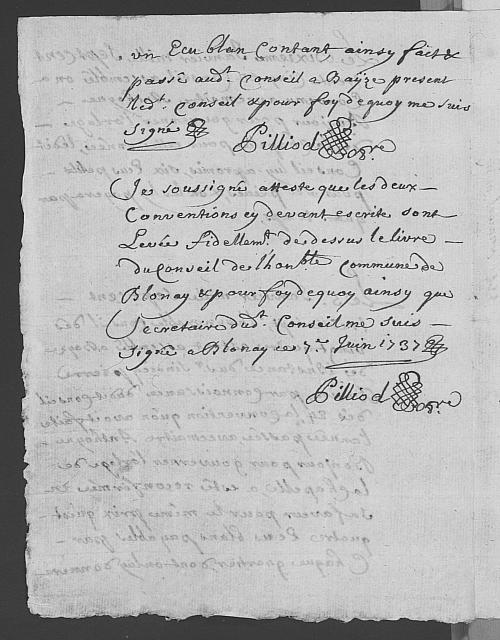 un Ecu blan Contant ainsy fait &
passé aud.t Conseil a Baÿze present
led.t Conseil & pour foy de quoy me suis
Signé
Pilliod
Je soussigné atteste que les deux
Conventions cy devant escrite sont
Levée fidellem.t de dessus le livre
du Conseil de l'hon.ble Commune de
Blonay & pour foy de quoy ainsy que
Secretaire dud.t Conseil me suis
Signé a Blonay ce 7.e Juin 1737
Pilliod